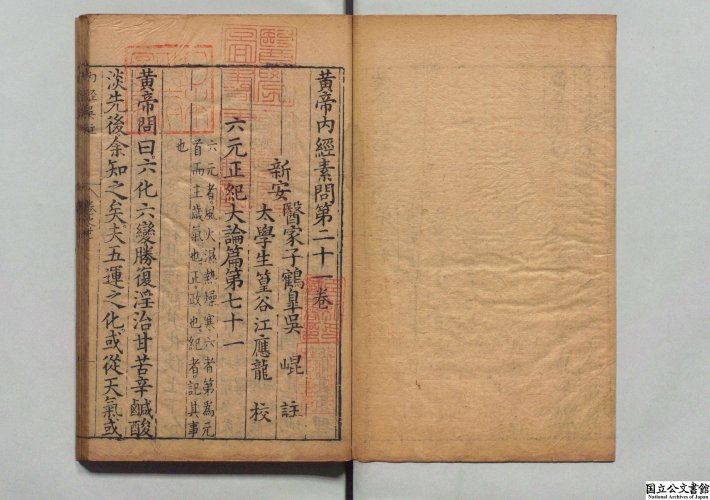 黄帝內經素問第二十一卷
新安
醫家子鶴臯吳崐註
太學生篁谷江應龍校
六元正紀大論篇第七十一
六元者風火濕熱燥寒六者第為元
首而主歲氣也正政也紀者記其事
也
黄帝問曰六化六變勝復淫治甘苦辛鹹酸
淡先後余知之矣夫五運之化或從天氣或
国立公文書館
National Archives of Japan